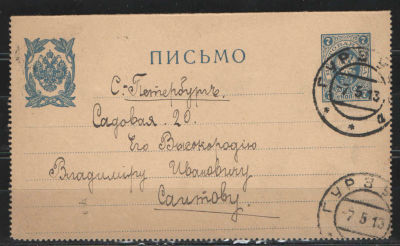 ПИСЬМО
7
7
С.-Петербургъ.
Садовая. 20.
Его Высокородію
Владиміру Ивановичу
Саитову.
ГУРЗ
-7.5.13
*
*
а
ГУРЗ
-7.5.13